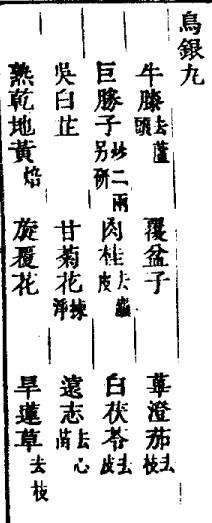 烏銀丸
牛膝去蘆頭 覆盆子 蓽澄茄去枝
巨勝子炒二兩另研 肉桂去麤皮 白茯苓去皮
吳白芷 甘菊花揀淨 遠志去心苗
熟乾地黃焙 旋覆花 旱蓮草去枝